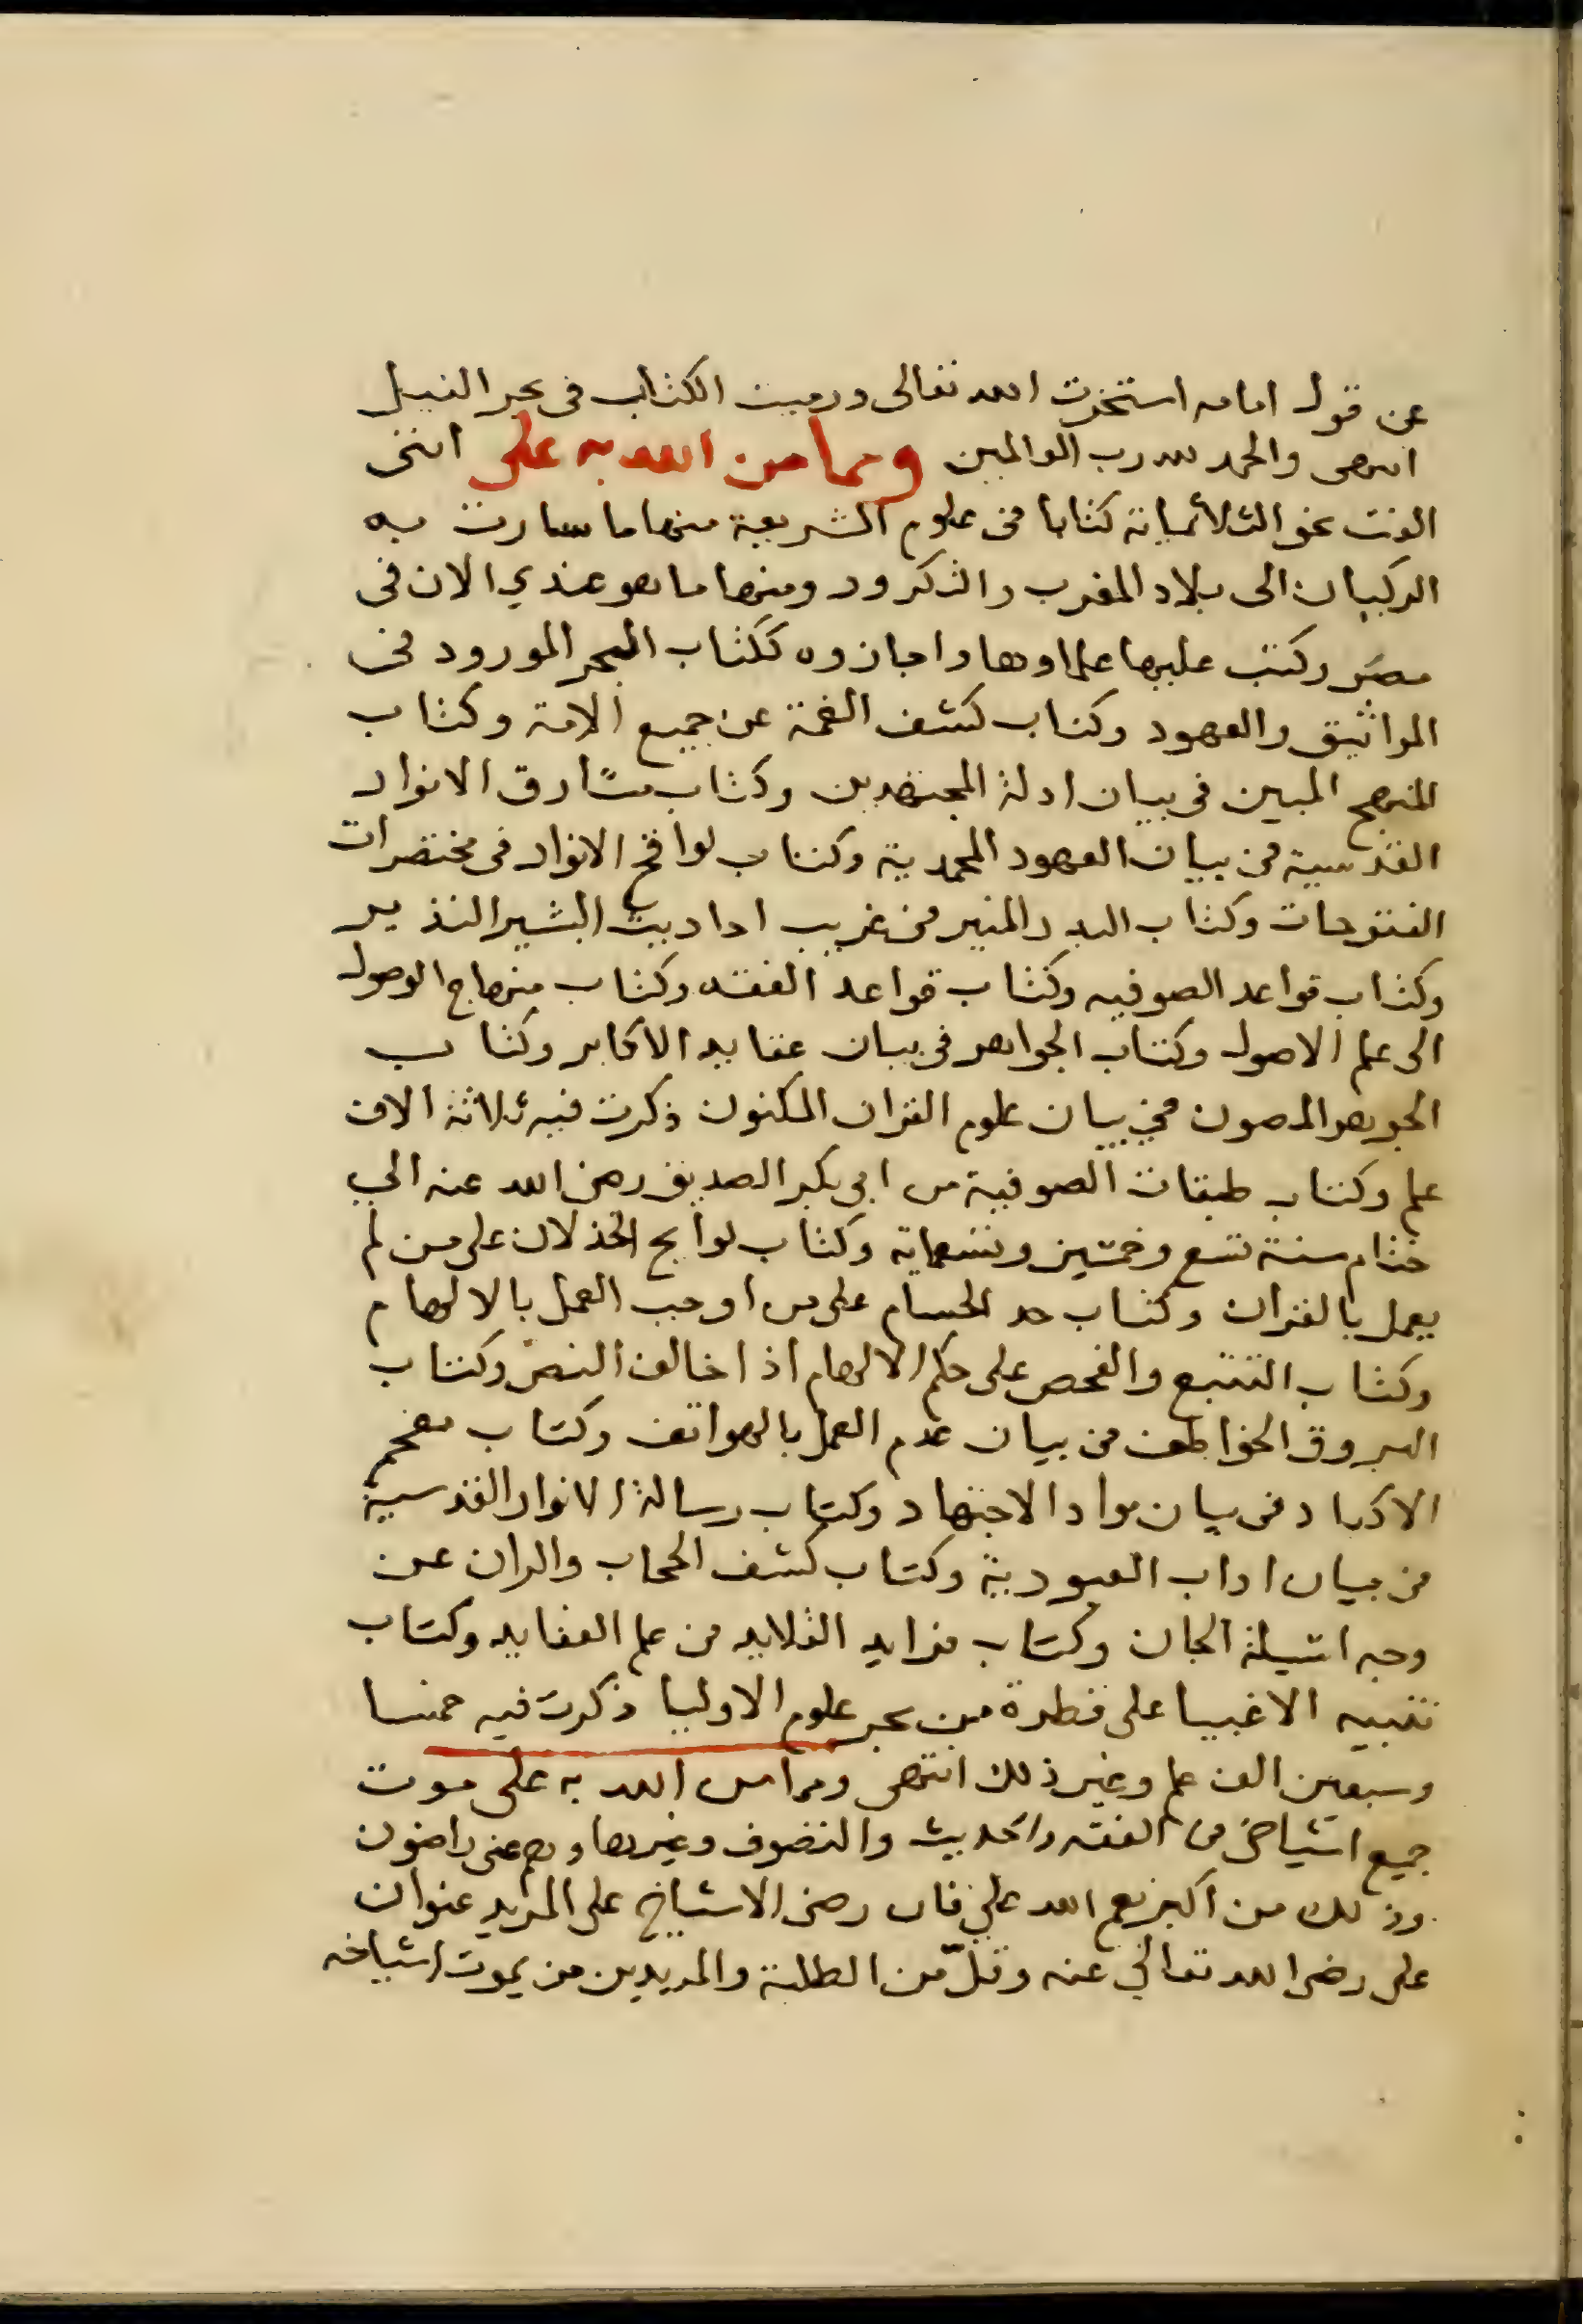 عن قول امامه استخرت الله تعالى ورميت الكتاب فى بحر النيل
انتهى والحمد لله رب العالمين ومما من الله به على اننى
الفت نحو الثلاثماية كتابا فى علوم الشريعة منها ما سارت به
الركبان الى بلاد المغرب والتكرور ومنها ما هو عندي الان فى
مصر وكتب عليها علماوها واجازوه ككتاب البحر المورود فى
المواثيق والعهود وكتاب كشف الغمة عن جميع الامة وكتاب
المنهج المبين فى بيان ادلة المجتهدين وكتاب مشارق الانوار
القدسية فى بيان العهود المحمدية وكتاب لواقح الانوار فى مختصرات
الفتوحات وكتاب البدر المنير فى غريب احاديث البشير النذير
وكتاب قواعد الصوفيه وكتاب قواعد الفقه وكتاب منهاج الوصول
الى علم الاصول وكتاب الجواهر فى بيان عقايد الاكابر وكتاب
الجوهر المصون في بيان علوم القران المكنون ذكرت فيه ثلاثة الاف
علم وكتاب طبقات الصوفية من ابى بكر الصديق رضى الله عنه الي
ختام سنة تسع وخمسين وتسعماية وكتاب لوايح الخذلان على من لم
يعمل بالقران وكتاب حد الحسام على من اوجب العمل بالالهام
وكتاب التتبع والفحص على حكم الالهام اذا خالف النص وكتاب
البروق الخواطف فى بيان عدم العمل بالهواتف وكتاب مفحم
الاكباد فى بيان مواد الاجتهاد وكتاب رسالة الانوار القدسية
فى بيان اداب العبودية وكتاب كشف الحجاب والران عن
وجه اسيلة الجان وكتاب فرايد القلايد فى علم العقايد وكتاب
تنبيه الاغبيا على قطرة من بحر علوم الاوليا ذكرت فيه خمسا
وسبعين الف علم وغير ذلك انتهى ومما من الله به على موت
جميع اشياخى فى الفقه والحديث والتصوف وغيرها وهم عنى راضون
وذلك من اكبر نعم الله علي فان رضى الاشياخ على المريد عنوان
على رضى الله تعالي عنه وقلّ من الطلبة والمريدين من يموت اشياخه